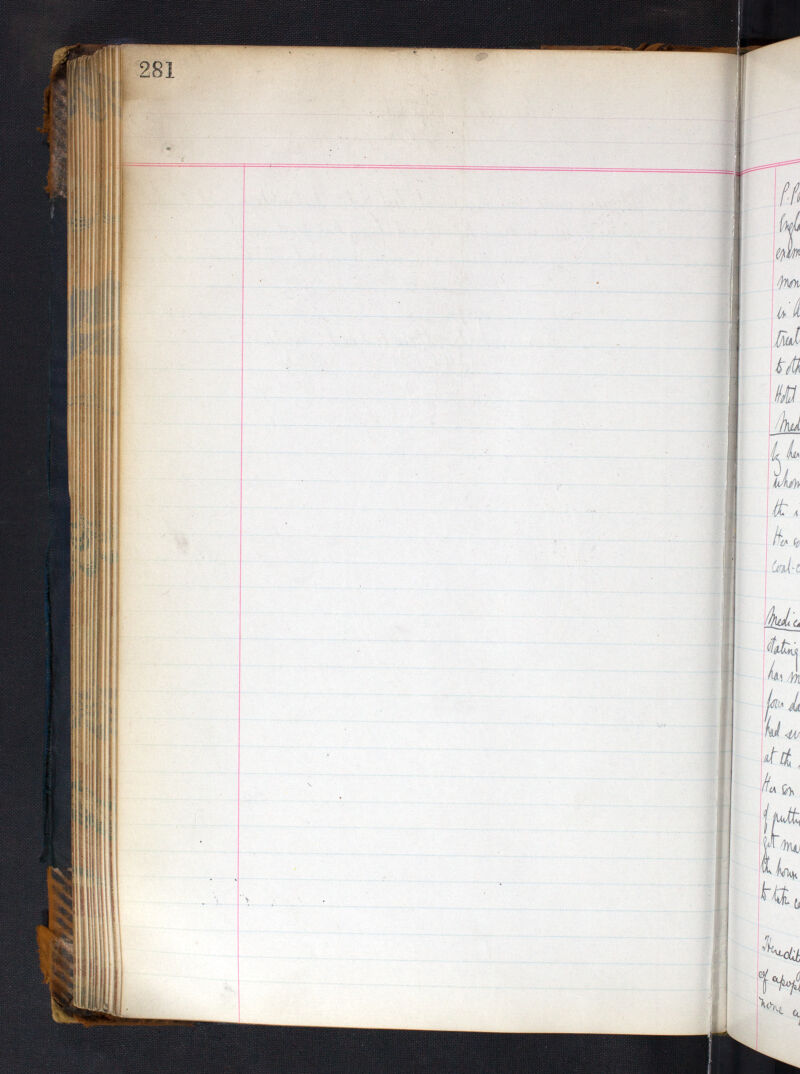 281
P. Pa
Engla
exam
mon
in A
treat
to oth
Hotel
Med
by her
whom
the
Her so
coal-c
Medica
stating
has m
four da
had
at the
Her son
of putti
get ma
the house
to take c
Heredit
of apopl
none